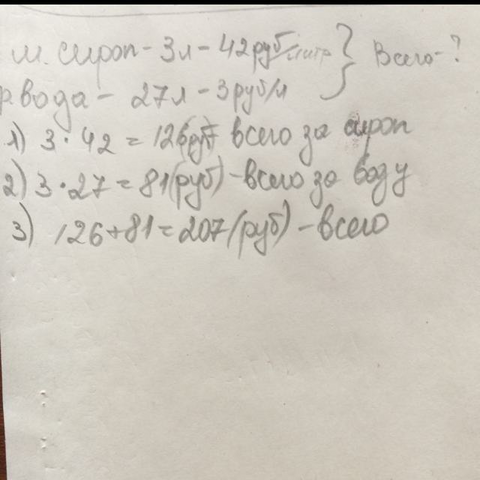 м. сироп - 3л - 42руб/литр } Всего-?
р.вода - 27л - 3руб/л
1) 3 · 42 = 126(руб) всего за сироп
2) 3 · 27 = 81(руб) - всего за воду
3) 126 + 81 = 207 (руб) - всего